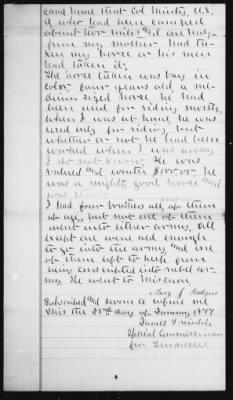 came home that Col Minty, U.S.
A who had been camped
about two miles and one half
from my mother had ta-
ken my horse or his men
had taken it.
The horse taken was bay in
color, four years old, a me-
dium sized horse he had
been used for riding mostly
when I was at home he was
used only for riding, but
whether or not he had been
worked when I was away
I do not know. He was
valued and worth $150.00. he
was a mighty good horse and
was
I had four brothers all of them
of age, but not one of them
went into either army. All
except one were old enough
to go into the army, and one
of them left to keep from
being conscripted into rebel ar-
my. He went to Missouri
Mary J Rodgers
Subscribed and sworn to before me
this the 25th day of January 1877
James
Special Commissioner
for Tennessee